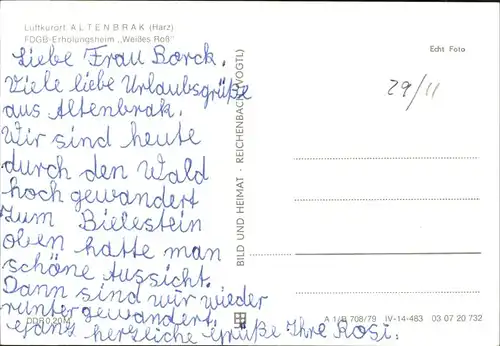 Luftkurort ALTENBRAK (Harz)
FDGB-Erholungsheim „Weißes Roß"
Liebe Frau Borck.
Viele liebe Urlaubsgrüße
aus Altenbrak.
Wir sind heute
durch den Wald
hoch gewandert
zum Bielestein
oben hatte man
schöne Aussicht.
Dann sind wir wieder
runtergewandert.
Ganz herzliche Grüße Ihre Rosi.
DDR 0,20 M
BILD UND HEIMAT · REICHENBACH (VOGTL)
Echt Foto
29/11
A 1/B 708/79 IV-14-483 03 07 20 732